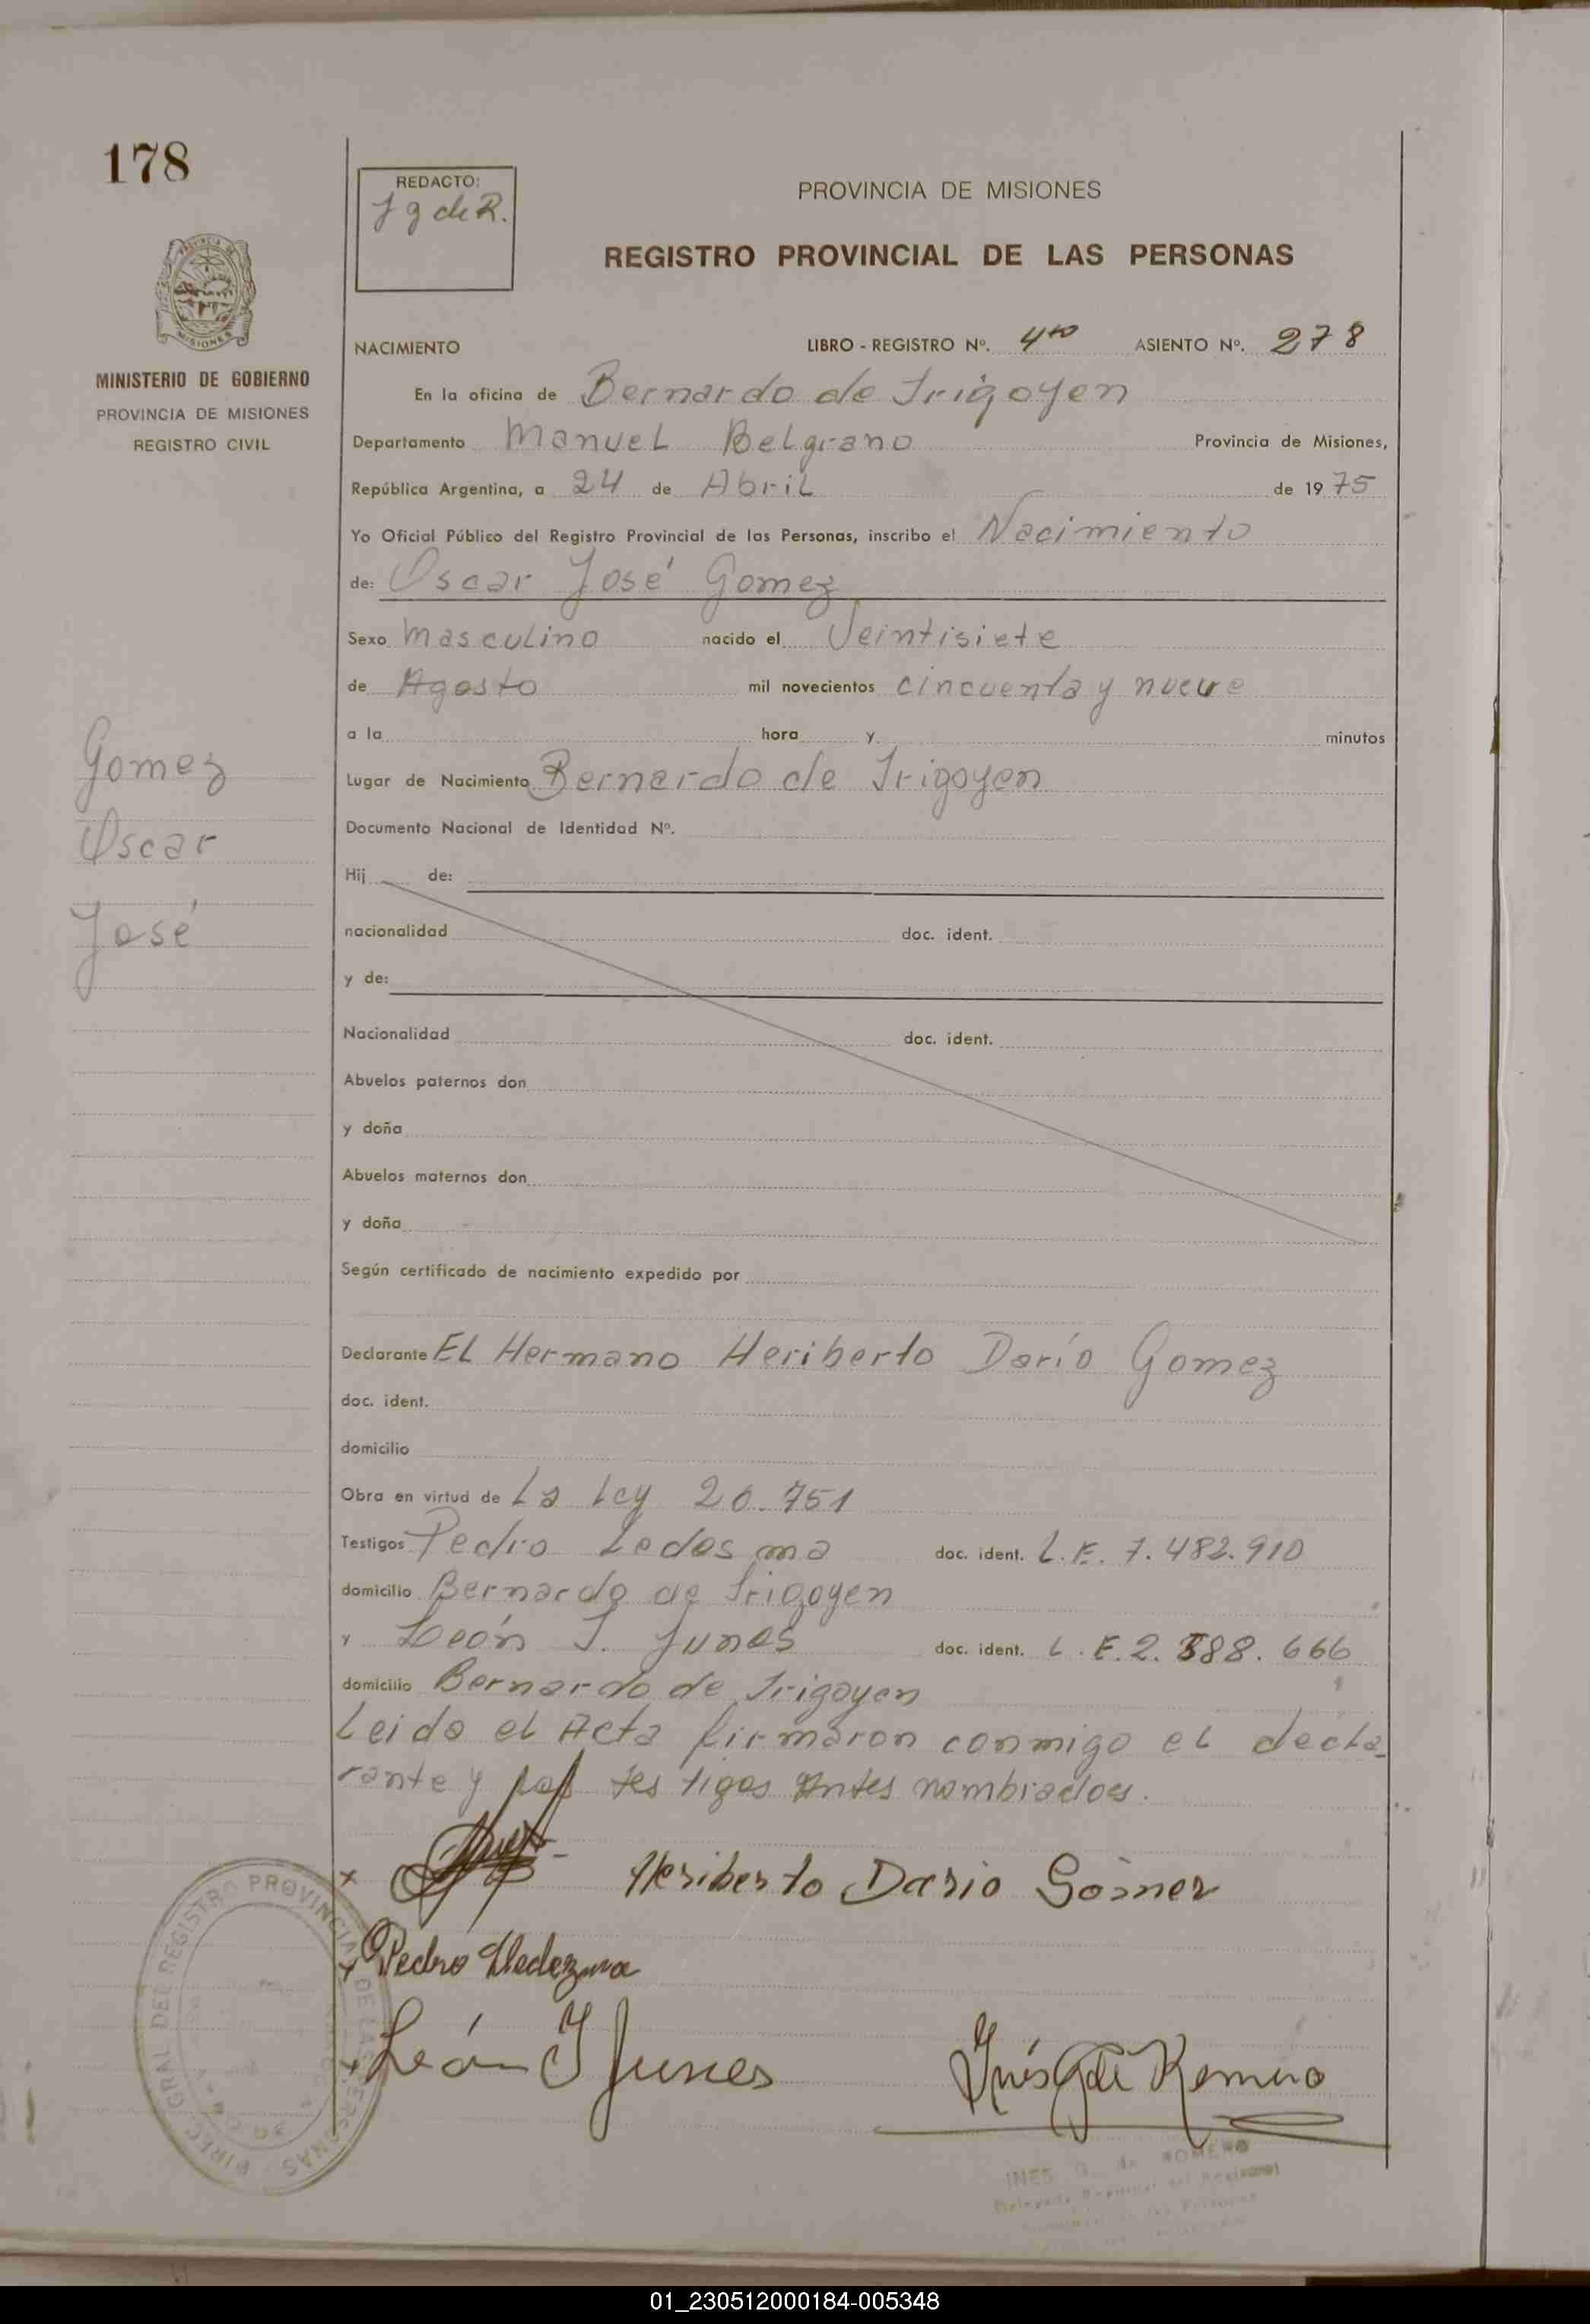 178
REDACTO:
J g de R.
PROVINCIA DE MISIONES
REGISTRO PROVINCIAL DE LAS PERSONAS
MISIONES
MINISTERIO DE GOBIERNO
PROVINCIA DE MISIONES
REGISTRO CIVIL
NACIMIENTO LIBRO - REGISTRO Nº. 4to ASIENTO Nº. 278
En la oficina de Bernardo de Irigoyen
Departamento Manuel Belgrano Provincia de Misiones,
República Argentina, a 24 de Abril de 1975
Yo Oficial Público del Registro Provincial de las Personas, inscribo el Nacimiento
de: Oscar José Gomez
Sexo Masculino nacido el Veintisiete
de Agosto mil novecientos cincuenta y nueve
a la hora y minutos
Lugar de Nacimiento Bernardo de Irigoyen
Documento Nacional de Identidad Nº.
Gomez
Oscar
José
Hij de:
nacionalidad doc. ident.
y de:
Nacionalidad doc. ident.
Abuelos paternos don
y doña
Abuelos maternos don
y doña
Según certificado de nacimiento expedido por
Declarante El Hermano Heriberto Darío Gomez
doc. ident.
domicilio
Obra en virtud de La Ley 20.751
Testigos Pedro Ledesma doc. ident. L.E. 7.482.910
domicilio Bernardo de Irigoyen
y León I. Junes doc. ident. L.E. 2.388.666
domicilio Bernardo de Irigoyen
Leido el Acta firmaron conmigo el decla-
rante y los testigos antes nombrados.
Heriberto Dario Gómez
Pedro Lledezma
León I Junes
Inés G de Romero
INES G. de ROMERO
DIREC. GRAL DEL REGISTRO PROVINCIAL DE LAS PERSONAS
01_230512000184-005348